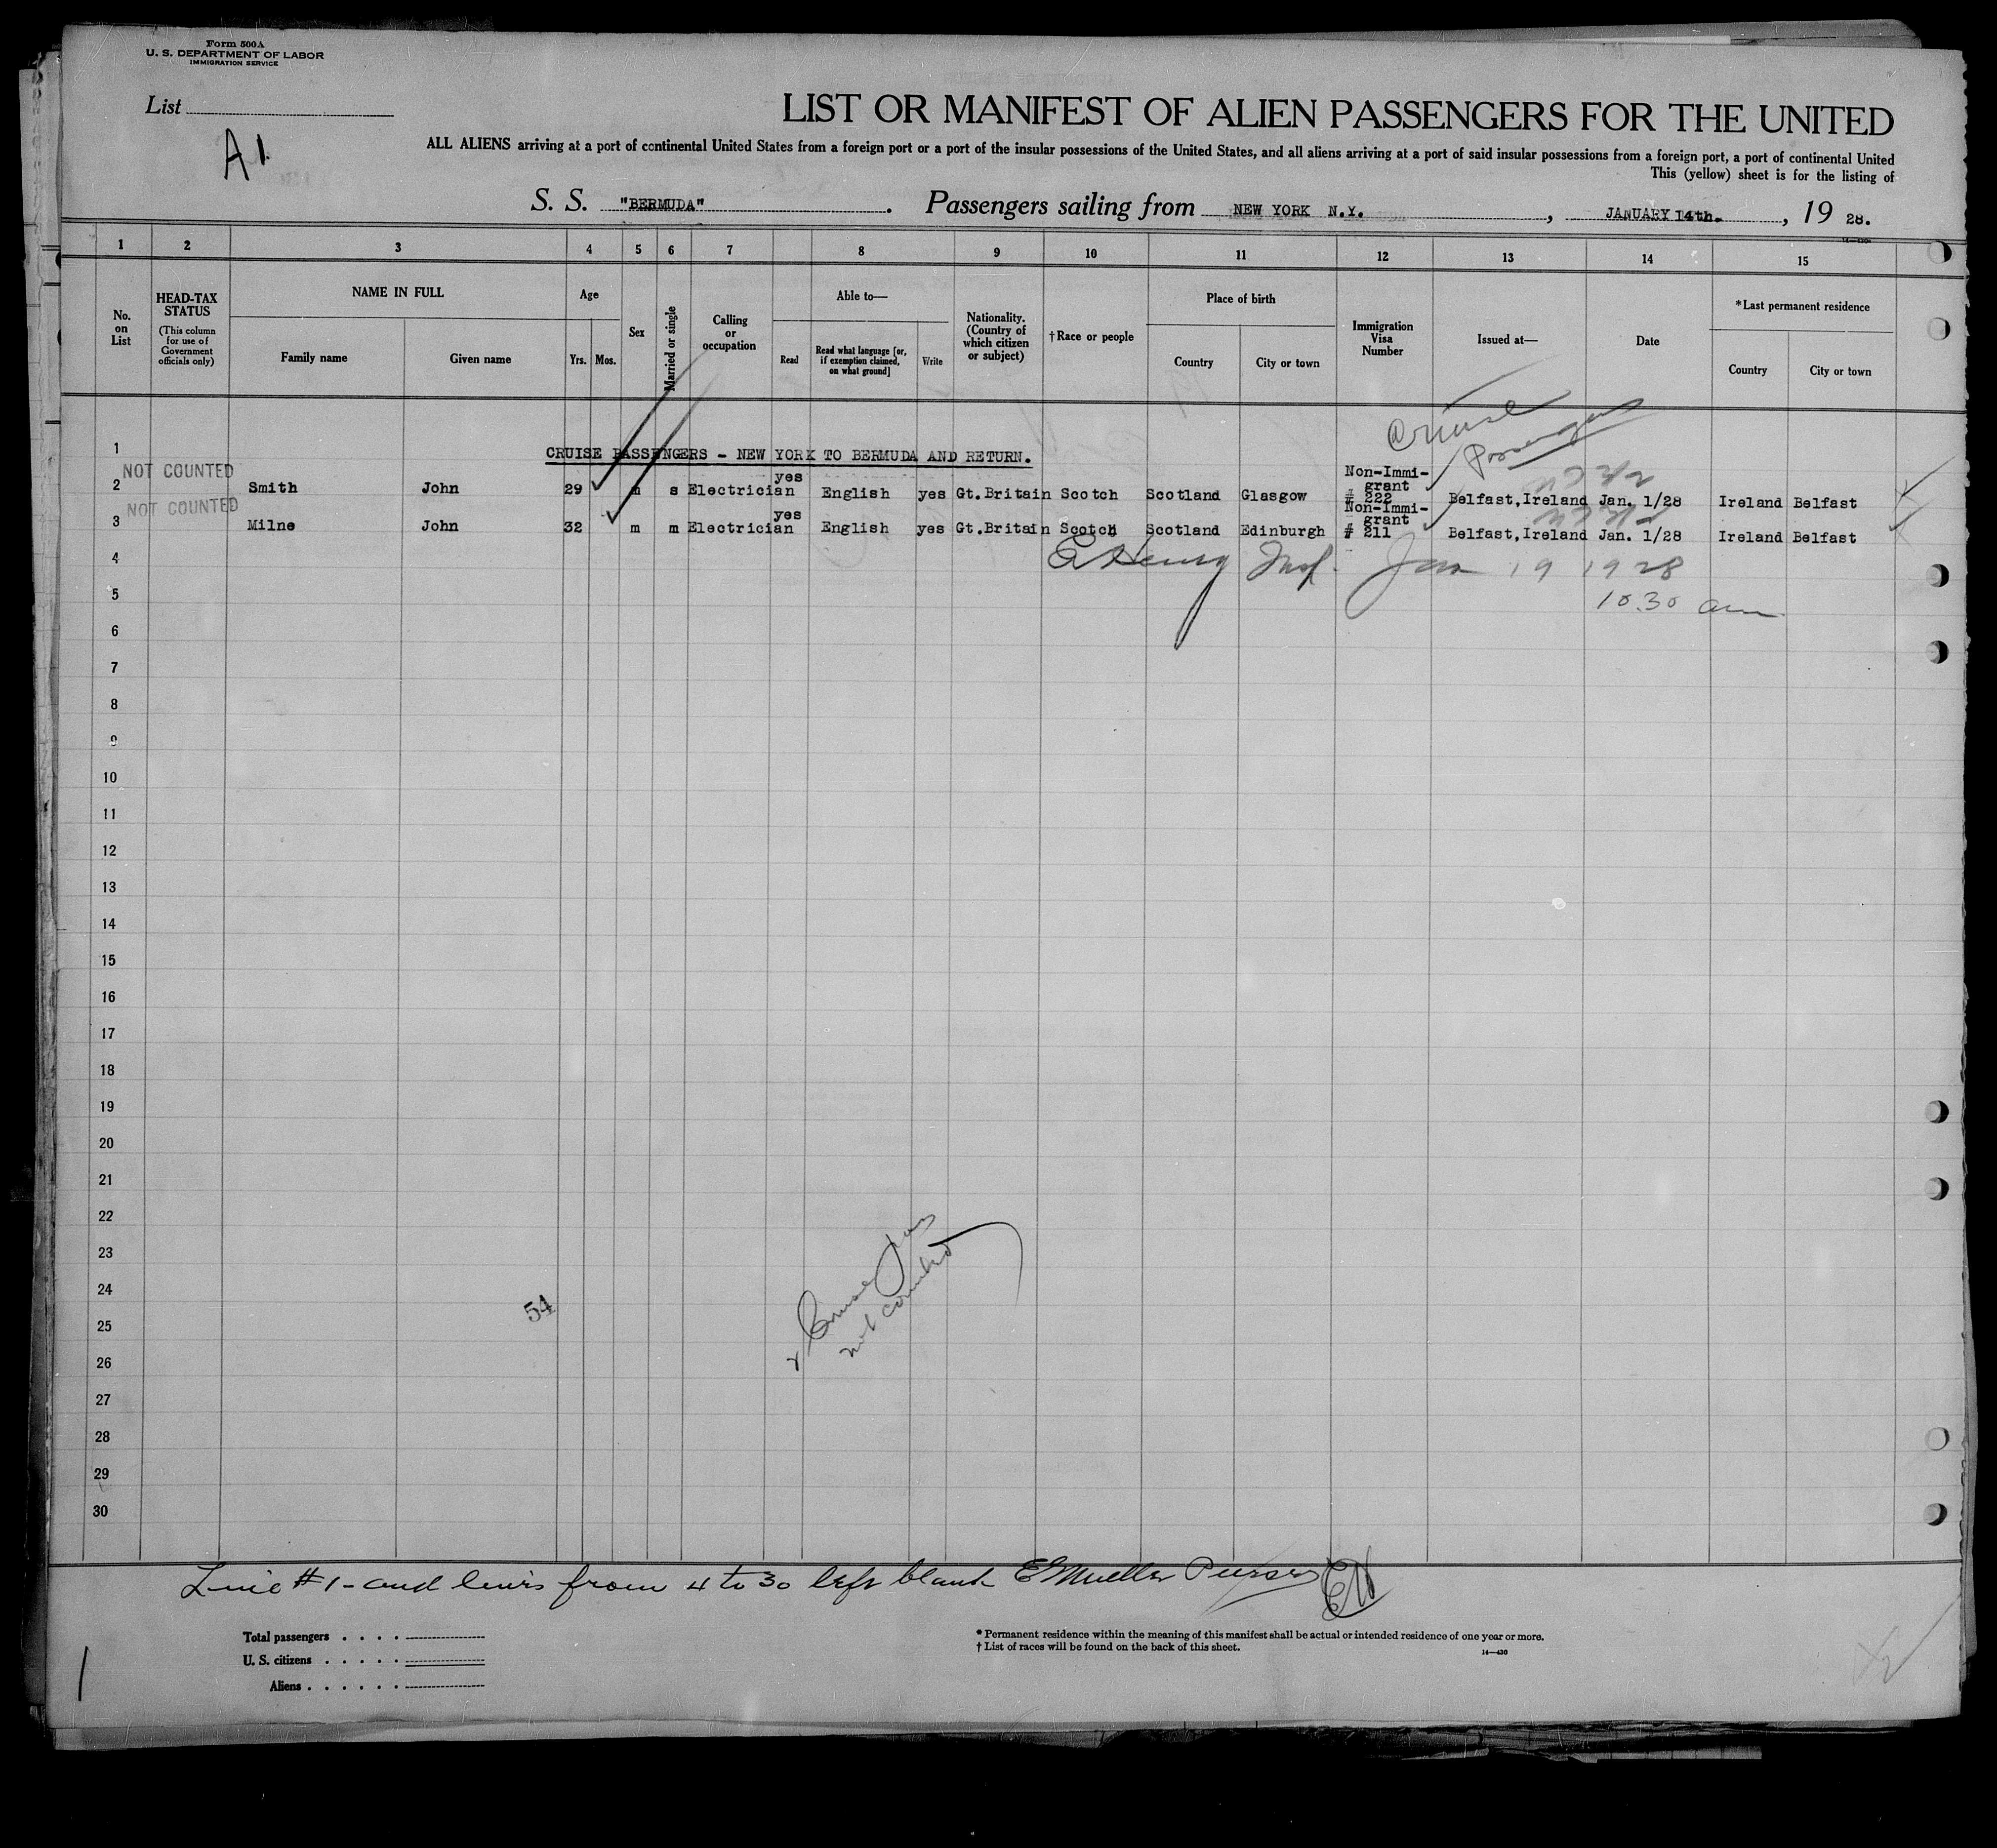 Form 500A
U. S. DEPARTMENT OF LABOR
IMMIGRATION SERVICE
List
A1
LIST OR MANIFEST OF ALIEN PASSENGERS FOR THE UNITED
ALL ALIENS arriving at a port of continental United States from a foreign port or a port of the insular possessions of the United States, and all aliens arriving at a port of said insular possessions from a foreign port, a port of continental United
This (yellow) sheet is for the listing of
S. S. "BERMUDA". Passengers sailing from NEW YORK N.Y. , JANUARY 14th. , 19 28.
1 2 3 4 5 6 7 8 9 10 11 12 13 14 15
No. on List
HEAD-TAX STATUS (This column for use of Government officials only)
NAME IN FULL
Family name Given name
Age
Yrs. Mos.
Sex
Married or single
Calling or occupation
Able to—
Read Read what language [or, if exemption claimed, on what ground] Write
Nationality. (Country of which citizen or subject)
†Race or people
Place of birth
Country City or town
Immigration Visa Number
Issued at—
Date
*Last permanent residence
Country City or town
Cruise
Passengers
1 CRUISE PASSENGERS - NEW YORK TO BERMUDA AND RETURN.
NOT COUNTED
2 Smith John 29 m s Electrician yes English yes Gt.Britain Scotch Scotland Glasgow Non-Immigrant # 222 Belfast,Ireland Jan. 1/28 Ireland Belfast
NOT COUNTED
3 Milne John 32 m m Electrician yes English yes Gt.Britain Scotch Scotland Edinburgh Non-Immigrant # 211 Belfast,Ireland Jan. 1/28 Ireland Belfast
4 E Henry Insp. Jan 19 1928
5 10.30 am
6
7
8
9
10
11
12
13
14
15
16
17
18
19
20
21
22
23
24
25
26
27
28
29
30
54
Cruise Pas
not counted
Line #1 - and lines from 4 to 30 left blank E Mueller Purser EH
Total passengers . . . .
U. S. citizens . . . . .
Aliens . . . . . .
* Permanent residence within the meaning of this manifest shall be actual or intended residence of one year or more.
† List of races will be found on the back of this sheet.
14—430